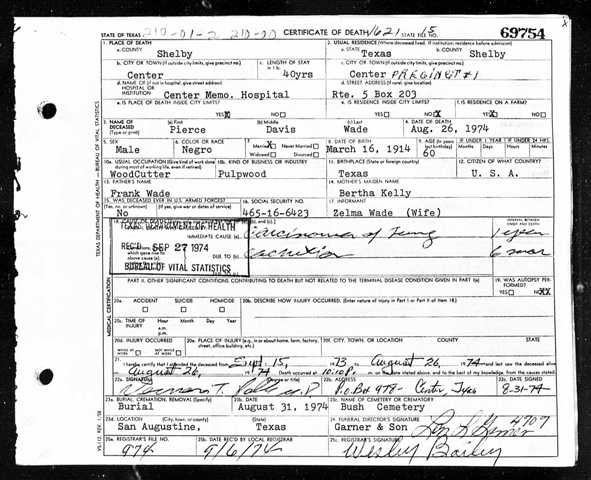 STATE OF TEXAS 210-01-2 210-00 CERTIFICATE OF DEATH 1621 STATE FILE NO. 15 69754
1. PLACE OF DEATH 2. USUAL RESIDENCE (Where deceased lived. If institution: residence before admission)
a. COUNTY Shelby a. STATE Texas b. COUNTY Shelby
b. CITY OR TOWN (If outside city limits, give precinct no.) c. LENGTH OF STAY in 1 b. c. CITY OR TOWN (If outside city limits, give precinct no.)
Center 40yrs Center PRECINCT #1
d. NAME OF (If not in hospital, give street address) HOSPITAL OR INSTITUTION d. STREET ADDRESS (If rural, give location)
Center Memo. Hospital Rte. 5 Box 203
e. IS PLACE OF DEATH INSIDE CITY LIMITS? e. IS RESIDENCE INSIDE CITY LIMITS? f. IS RESIDENCE ON A FARM?
YES X NO YES NO X YES NO X
3. NAME OF DECEASED (Type or print) (a) First (b) Middle (c) Last 4. DATE OF DEATH
Pierce Davis Wade Aug. 26, 1974
5. SEX 6. COLOR OR RACE 7. Married X Never Married Widowed Divorced 8. DATE OF BIRTH 9. AGE (In years last birthday) IF UNDER 1 YEAR IF UNDER 24 HRS.
Male Negro March 16, 1914 60 Months Days Hours Minutes
10a. USUAL OCCUPATION (Give kind of work done during most of working life, even if retired) 10b. KIND OF BUSINESS OR INDUSTRY 11. BIRTHPLACE (State or foreign country) 12. CITIZEN OF WHAT COUNTRY?
WoodCutter Pulpwood Texas U. S. A.
13. FATHER'S NAME 14. MOTHER'S MAIDEN NAME
Frank Wade Bertha Kelly
15. WAS DECEASED EVER IN U.S. ARMED FORCES? 16. SOCIAL SECURITY NO. 17. INFORMANT
(Yes, no, or unknown) (If yes, give war or dates of service)
No 465-16-6423 Zelma Wade (Wife)
TEXAS DEPARTMENT OF HEALTH
IMMEDIATE CAUSE (a) Carcinoma of Lung 1 year
REC'D SEP 27 1974
DUE TO (b) Cachexia 6 mos
BUREAU OF VITAL STATISTICS DUE TO (c)
PART II. OTHER SIGNIFICANT CONDITIONS CONTRIBUTING TO DEATH BUT NOT RELATED TO THE TERMINAL DISEASE CONDITION GIVEN IN PART I(a) 19. WAS AUTOPSY PERFORMED?
YES NO XX
20a. ACCIDENT SUICIDE HOMICIDE 20b. DESCRIBE HOW INJURY OCCURRED. (Enter nature of injury in Part I or Part II of Item 18.)
20c. TIME OF INJURY Hour Month Day Year
a.m.
p.m.
20d. INJURY OCCURRED 20e. PLACE OF INJURY (e.g., in or about home, farm, factory, street, office building, etc.) 20f. CITY, TOWN, OR LOCATION COUNTY STATE
WHILE AT WORK NOT WHILE AT WORK
21. I hereby certify that I attended the deceased from Sept. 15, 1973 August 26, 1974 and last saw the deceased alive
August 26, 1974 Death occurred at 10:10 P. m. on the date stated above, and to the best of my knowledge, from the causes stated.
22a. SIGNATURE (Degree or title) 22b. ADDRESS 22c. DATE SIGNED
M.D. P.O. Box 478- Center, Texas 8-31-74
23a. BURIAL, CREMATION, REMOVAL (Specify) 23b. DATE 23c. NAME OF CEMETERY OR CREMATORY
Burial August 31, 1974 Bush Cemetery
23d. LOCATION (City, town, or county) (State) 24. FUNERAL DIRECTOR'S SIGNATURE 4707
San Augustine, Texas Garner & Son
25a. REGISTRAR'S FILE NO. 25b. DATE REC'D BY LOCAL REGISTRAR 25c. REGISTRAR'S SIGNATURE
974 9/6/74 Wesley Bailey
TEXAS DEPARTMENT OF HEALTH — BUREAU OF VITAL STATISTICS
MEDICAL CERTIFICATION
VS-112 REV. 1/58